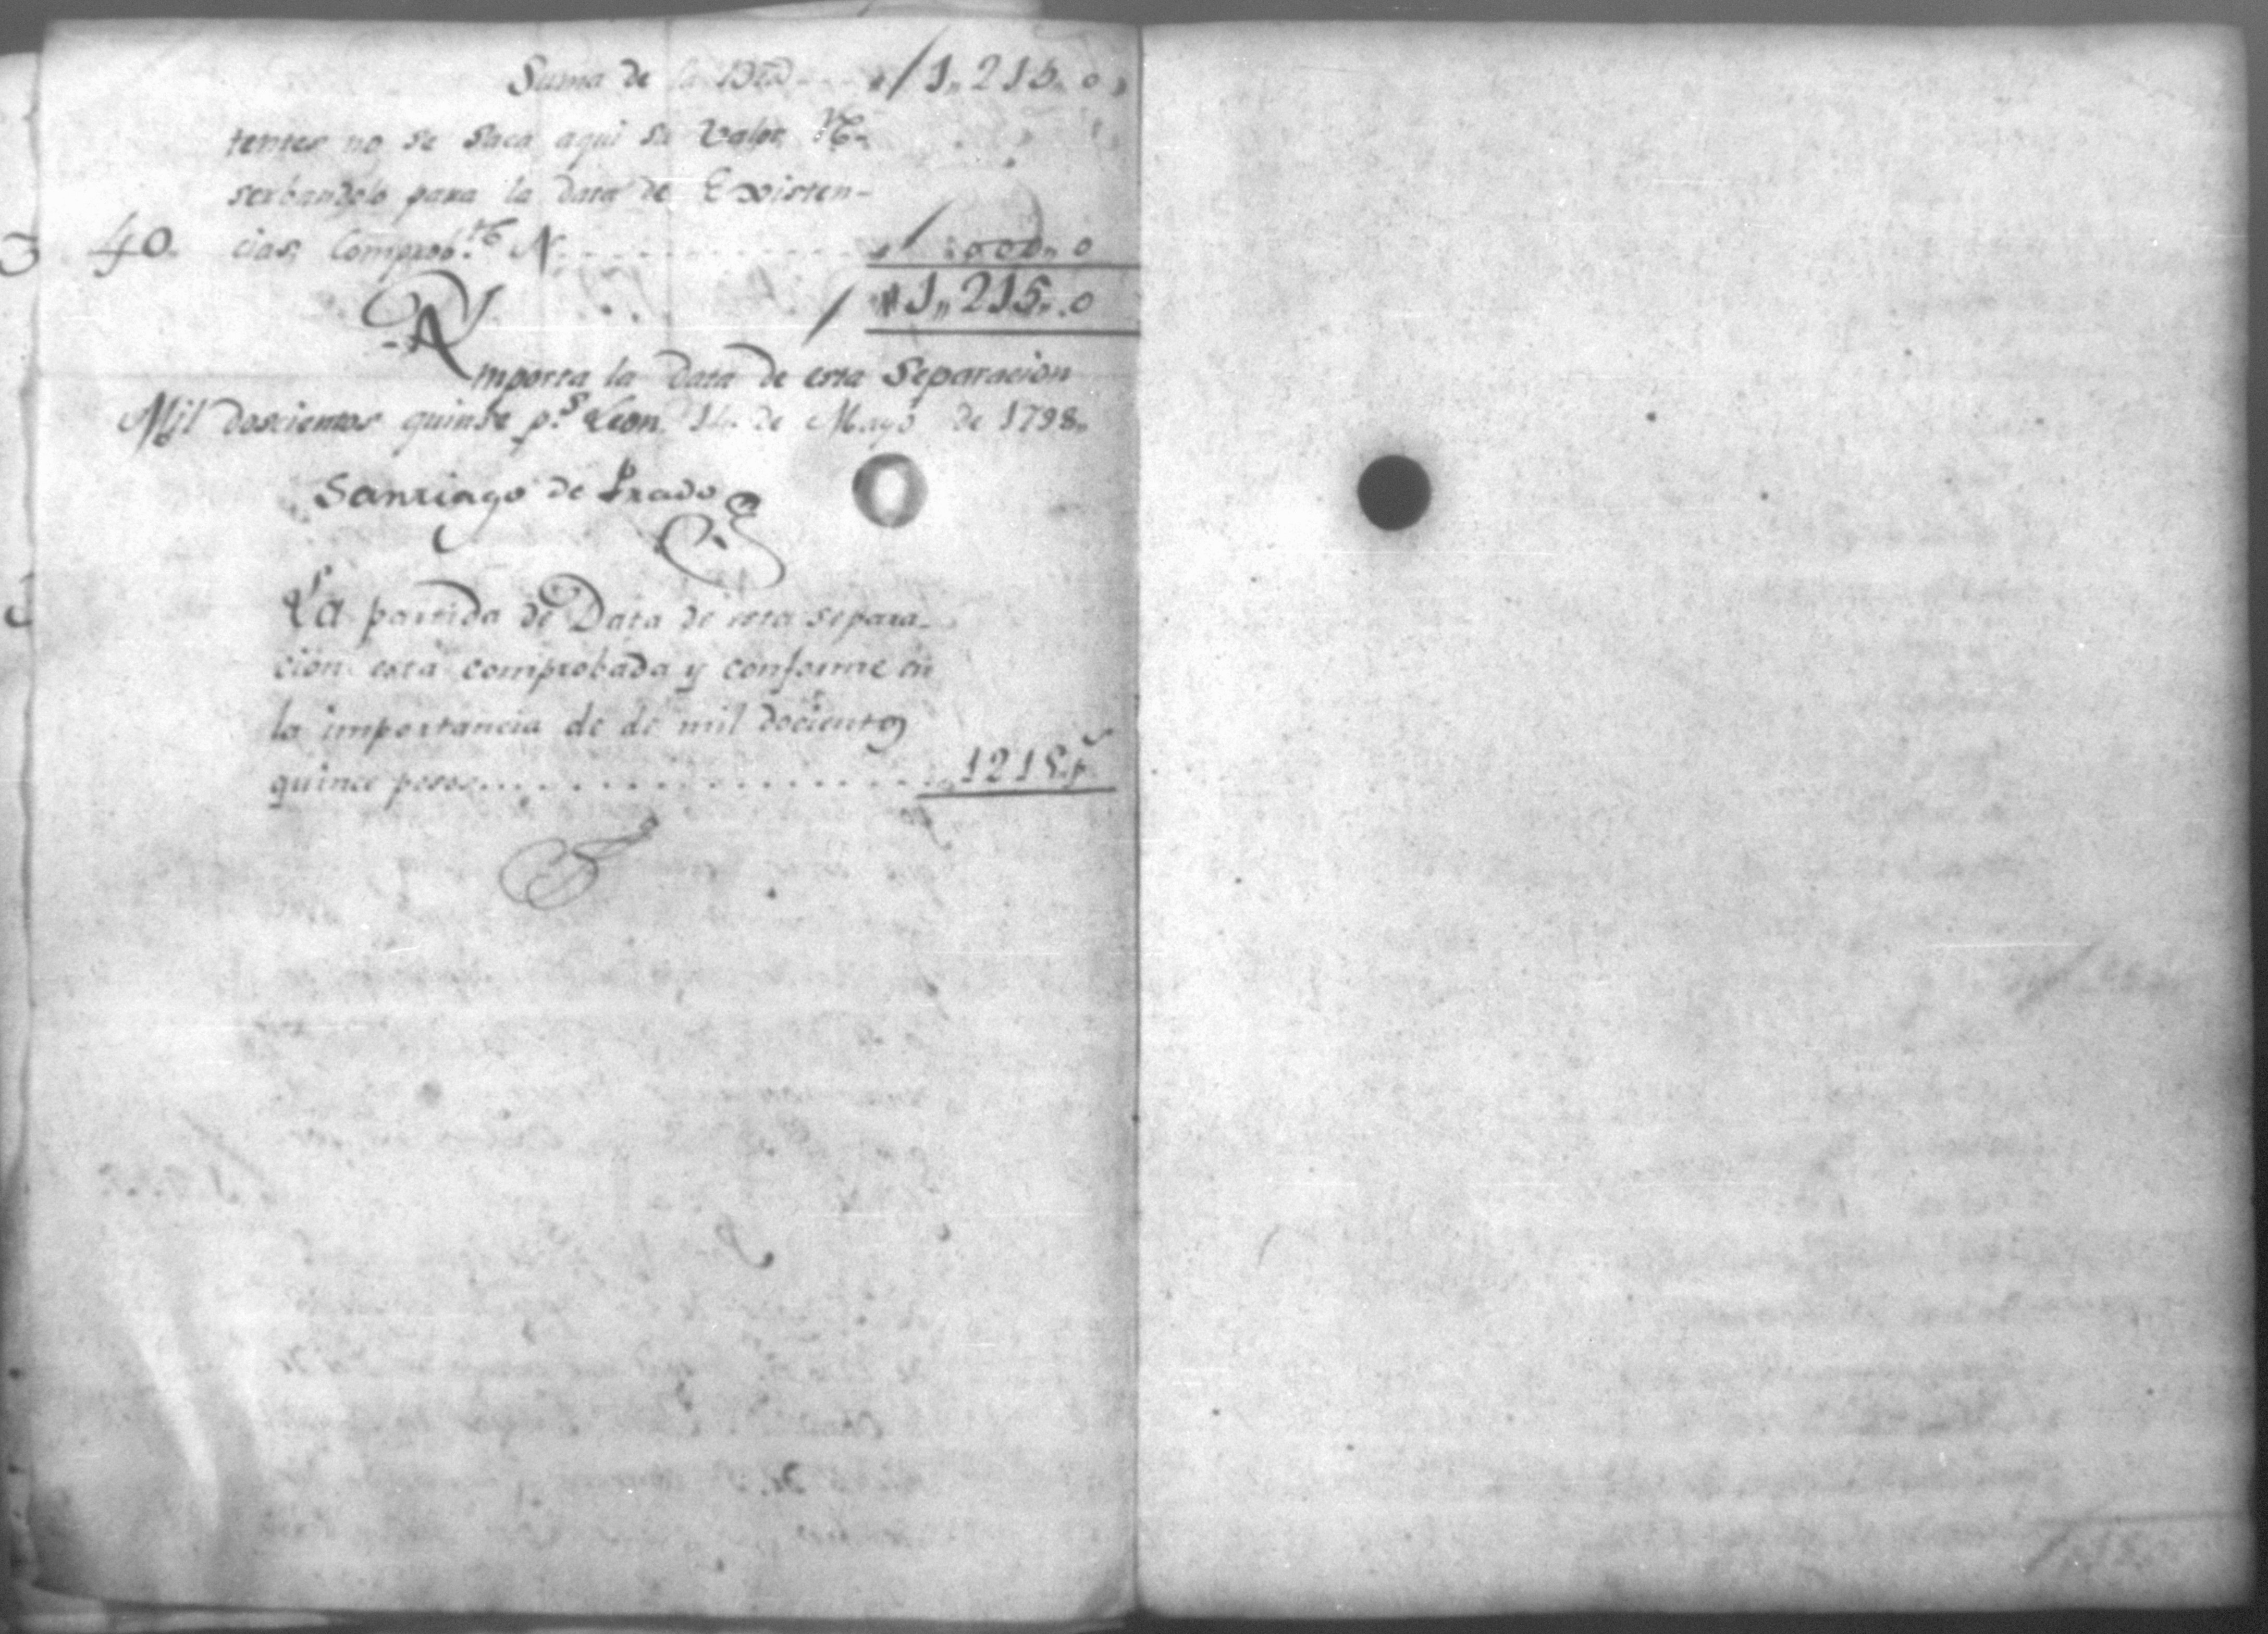 Suma de la Bta - - - " 1,, 215,, 0,,
tentes no se saca aqui su valor Re-
serbandolo para la data de Existen-
40. cias; Comprob.te N. - - - - - - - " 1 : 000,, 0
" 1,, 215,, 0
Importa la Data de esta Separacion
Mil doscientos quinse p.s Leon 14 de Mayo de 1798,,
Santiago de Prado
La partida de Data de esta separa-
cion está comprobada y conforme en
la importancia de de mil docientos
quince pesos . . . . . . . . . . . . . . . . . 1215 p.s